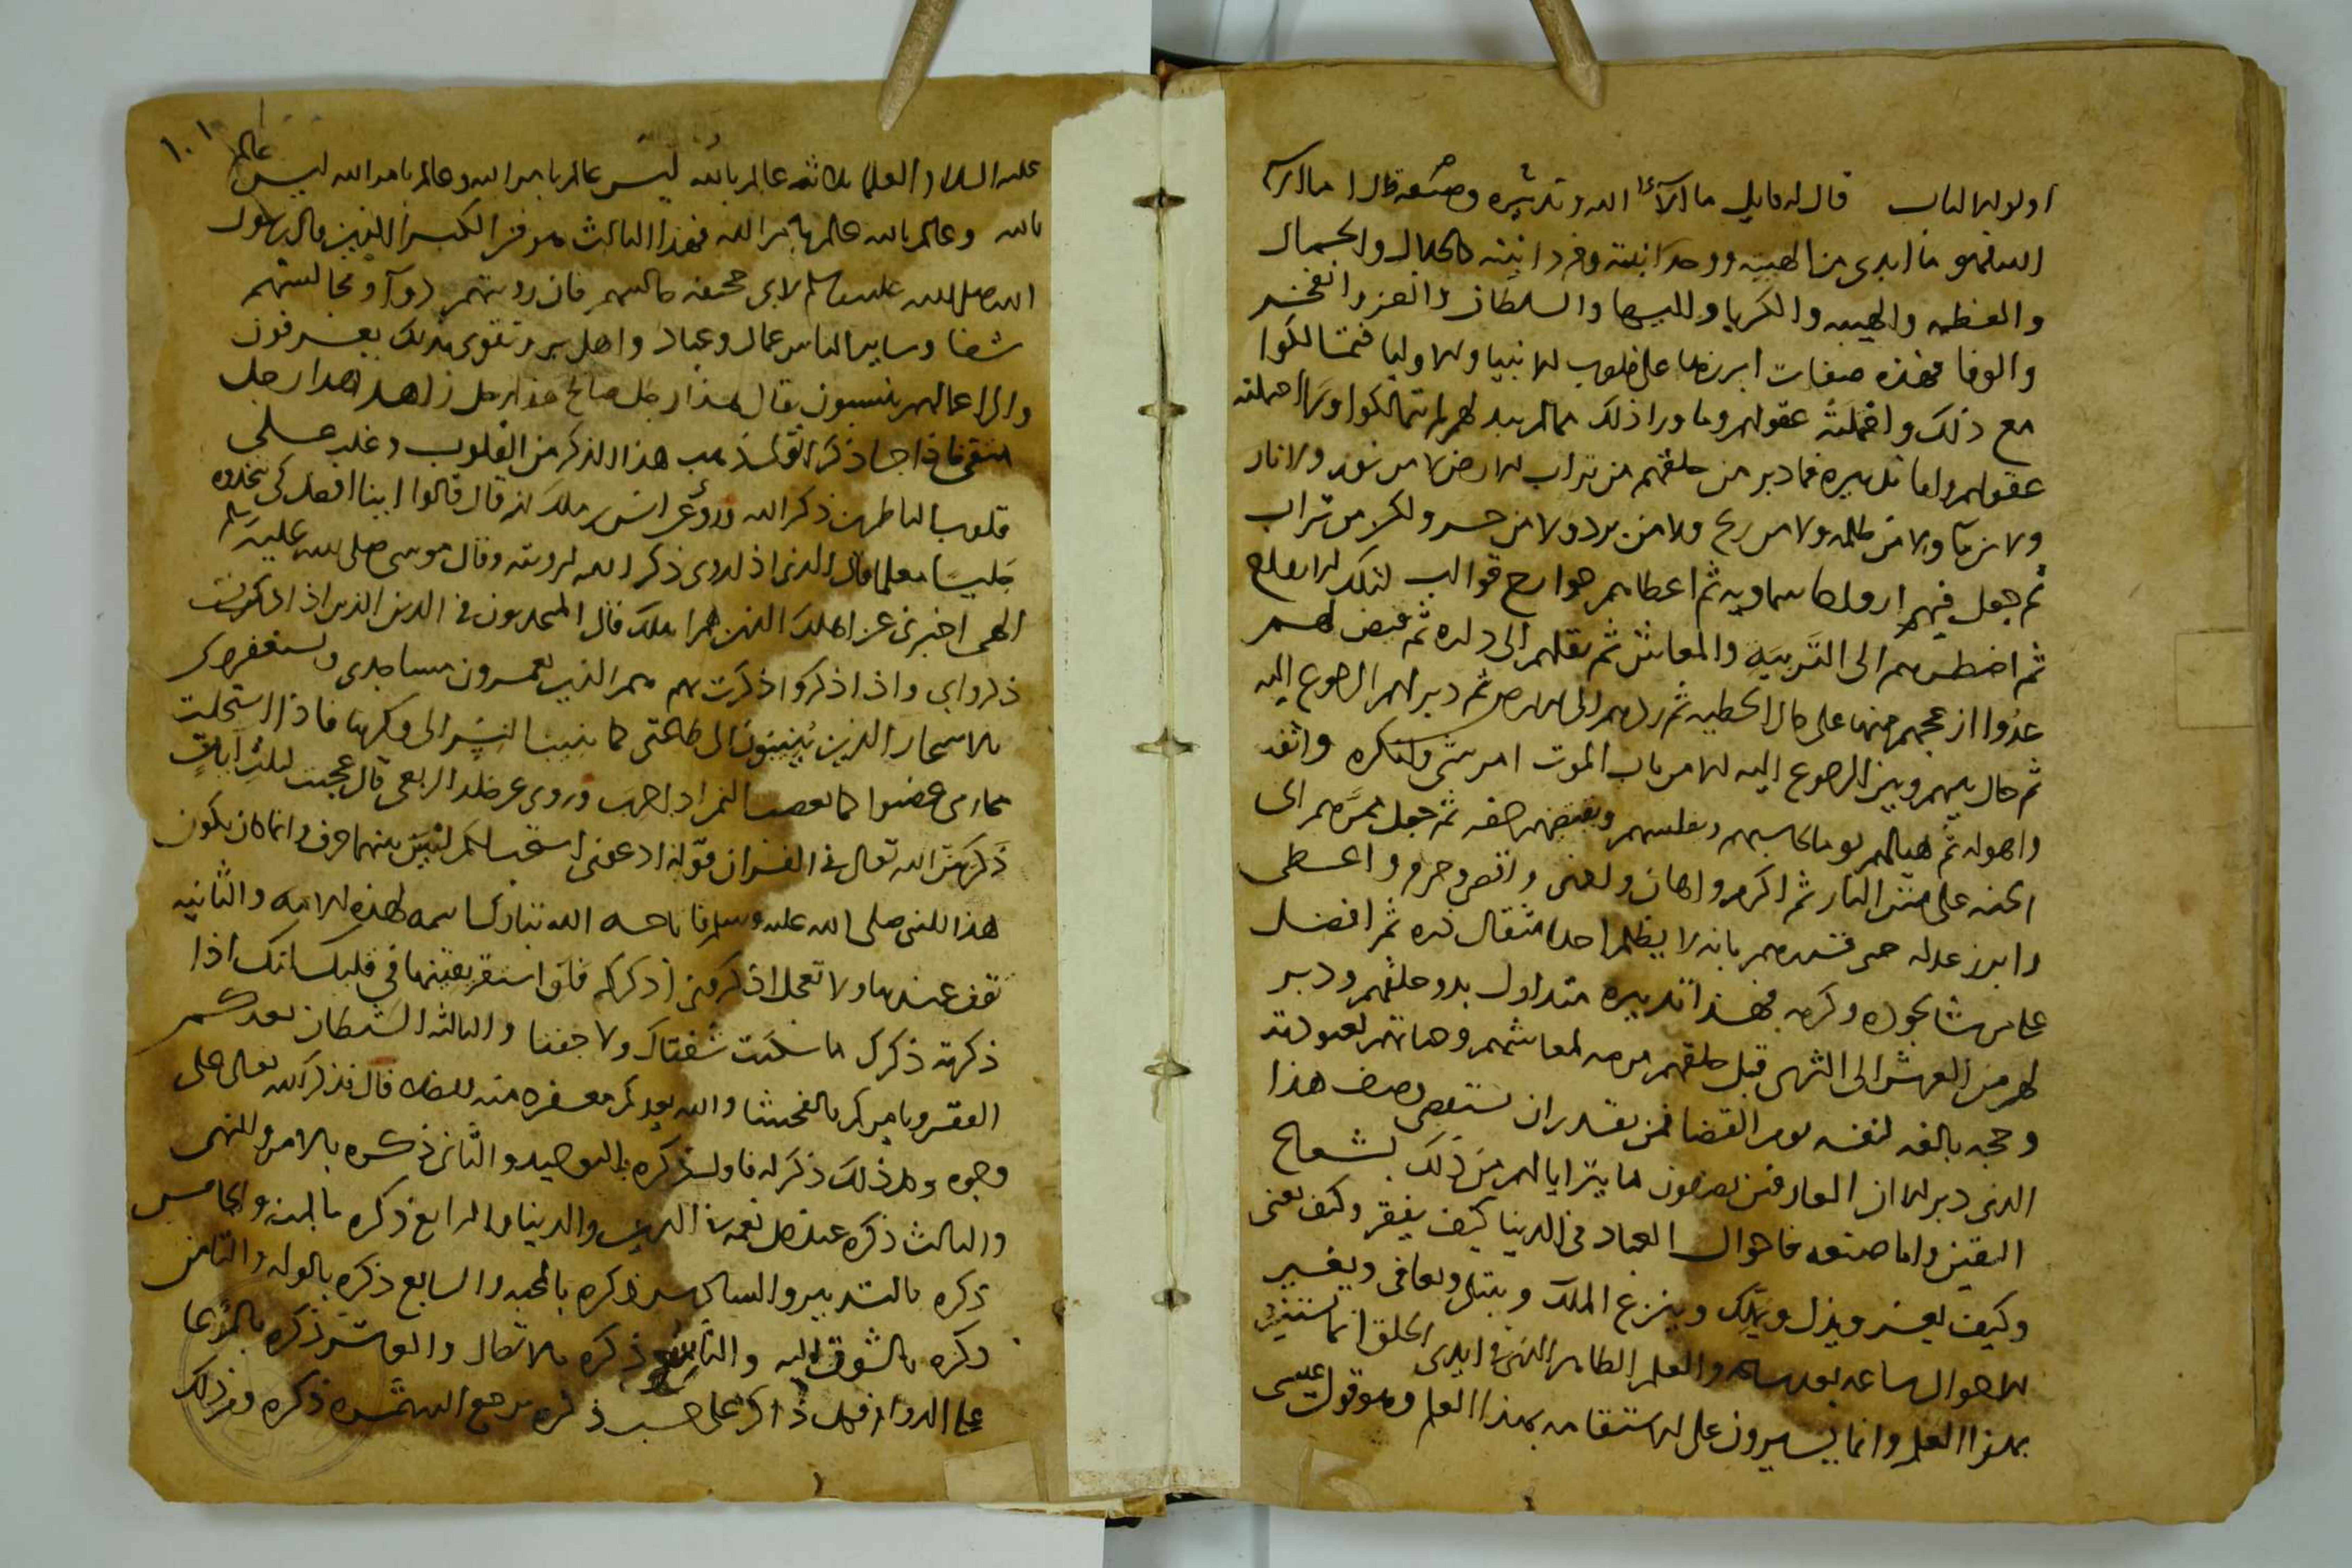 اولوا الالباب قال له قايل ما آلاء الله وتدبيره وصنعه قال اما آلآء
الله فهو ما ابدى من الهيته ووحدانيته وفردانيته كالجلال والجمال
والعظمه والهيبه والكبريا والبها والسلطان والعز والفخر
والوفا فهذه صفات ابرزها على قلوب الانبيا والاوليا فتمالكوا
مع ذلك واحتملته عقولهم وما ورا ذلك مما لم يبد لهم لم يتمالكوا ولا احتملته
عقولهم واما تدبيره فما دبر من خلقهم من تراب الارض لا من نور ولا نار
ولا من ماء ولا من ظلمه ولا من ريح ولا من برد ولا من حر ولكن من تراب
ثم جعل فيهم ارواحا سماويه ثم اعطاهم جوارح قوالب لتلك الارواح
ثم اضطرهم الى التربيه والمعاش ثم نقلهم الى داره ثم قيض لهم
عدوا ازعجهم منها على حال الخطيه ثم ردهم الى الارض ثم دبر لهم الرجوع اليه
ثم حال بينهم وبين الرجوع اليه الا من باب الموت امر شى وانكره واثقه
واهوله ثم هيا لهم يوما يحاسبهم ويقتضيهم حقه ثم جعل ممرهم الى
الجنه على متن النار ثم اكرم واهان وادنى واقصى وحرم واعطى
وابرز عدله حتى بانه لا يظلم احدا مثقال ذره ثم افضل
على من شا بجوده وكرمه فهذا تدبيره منذ اول بدو خلقهم ودبر
لهم من العرش الى الثرى قبل خلقهم مرمه لمعاشهم وهياتهم لعبودته
وحجه بالغه لنفسه يوم القضا فمن يقدر ان يستقصى وصف هذا
الذى دبر الا ان العارفين يعرفون ما يترايا لهم من ذلك بشعاع
اليقين واما صنعه فاحوال العباد فى الدنيا كيف يفقر وكيف يغنى
وكيف يعز ويذل ويملك وينزع الملك ويبتلى ويعافى ويغير
الاحوال ساعه بعد ساعه والعلم الظاهر الذى فى ايدى الخلق انما
بهذا العلم وانما يسيرون على الاستقامه بهذا العلم وهو قول عيسى
١٠١
عليه السلام العلما ثلاثه عالم بالله ليس عالم بامر الله وعالم بامر الله ليس عالم
بالله وعالم بالله عالم بامر الله فهذا الثالث هو من الكبرا الذين قال رسول
الله صلى الله عليه وسلم لابى جحيفه جالسهم فان رويتهم دوآ ومجالستهم
شفا وساير الناس عمال وعباد واهل بر وتقوى بذلك يعرفون
والى اعمالهم ينسبون يقال هذا رجل صالح هذا رجل زاهد هذا رجل
متقى فاذا جا ذكر الله ذهب هذا الذكر من القلوب وغلب على
قلوب الناظرين ذكر الله وروى عن انس بن ملك انه قال قالوا اينا افضل كى نتخذه
جليسا معلما قال الذى اذا روى ذكر الله لرويته وقال موسى صلى الله عليه وسلم
الهى اخبرنى عن اهلك الذين هم اهلك قال المتحابون فى الدين الذين اذا ذكرت
ذكروا بى واذا ذكروا ذكرت بهم هم الذين يعمرون مساجدى ويستغفرونى
بالاسحار الذين ينيبون الى طاعتى كما ينيب النسر الى وكرها فاذا استحلت
محارمى غضبوا كما يغضب النمر اذا حرب وروى عن خلد الربعى قال عجبت لثلث آيات
ذكرهن الله تعالى فى القران قوله ادعونى استجب لكم ليس بينهما حرف وانما كان يكون
هذا للنبى صلى الله عليه وسلم فاباحه الله تبارك اسمه لهذه الامه والثانيه
قف عندها ولا تعجل اذكرونى اذكركم فلو استقر يقينها فى قلبك انك اذا
ذكرته ذكرك ما سكنت شفتاك ولا جفتا والثالثه الشيطان يعدكم
الفقر ويامركم بالفحشا والله يعدكم مغفره منه وفضلا قال فذكر الله تعالى على
وجوه وكل ذلك ذكر له فاوله ذكره بالتوحيد والثانى ذكره بالامر والنهى
والثالث ذكره عند كل نعمه فى الدين والدنيا والرابع ذكره بالمنه والخامس
ذكره بالتدبير والسادس ذكره بالمحبه والسابع ذكره بالوله والثامن
ذكره بالشوق اليه والتاسع ذكره بالاتصال والعاشر ذكره
على الدوام فكل ذاكر على حسب ذكره يرجع اليه ثمره ذكره ومن ذلك